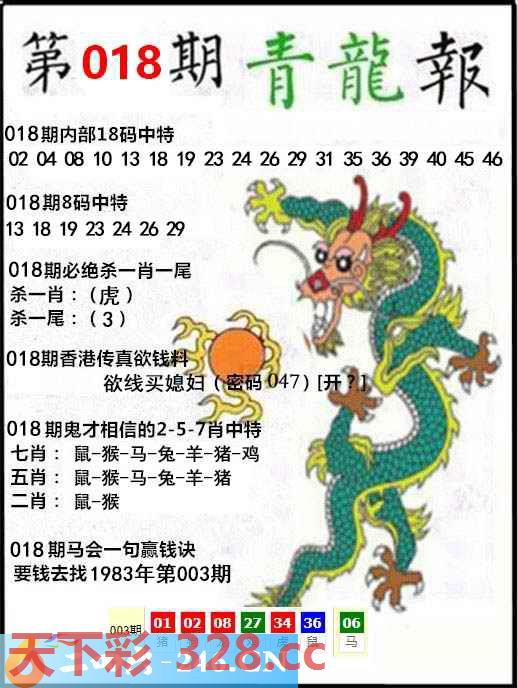 第018期青龍報
018期内部18码中特
02 04 08 10 13 18 19 23 24 26 29 31 35 36 39 40 45 46
018期8码中特
13 18 19 23 24 26 29
018期必绝杀一肖一尾
杀一肖：（虎）
杀一尾：（3）
018期香港传真欲钱料
欲线买媳妇（密码047）[开？]
018期鬼才相信的2-5-7肖中特
七肖： 鼠-猴-马-兔-羊-猪-鸡
五肖： 鼠-猴-马-兔-羊-猪
二肖： 鼠-猴
018期马会一句赢钱诀
要钱去找1983年第003期
003期 01 02 08 27 34 36 06
猪 虎 鼠 马
天下彩-328.cc